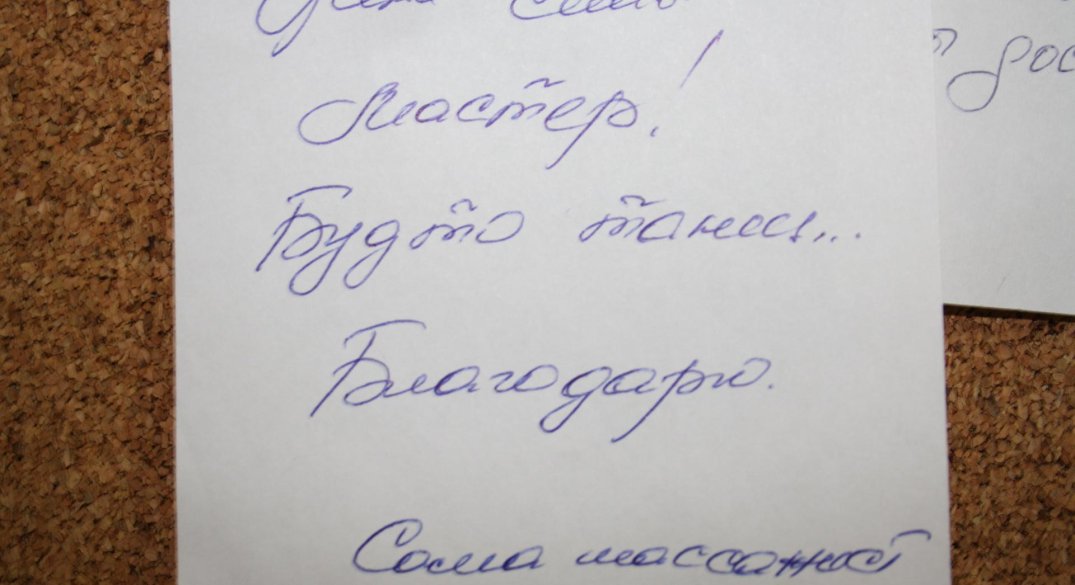 Мастер!
Будто танец...
Благодарю.
Сама массажист